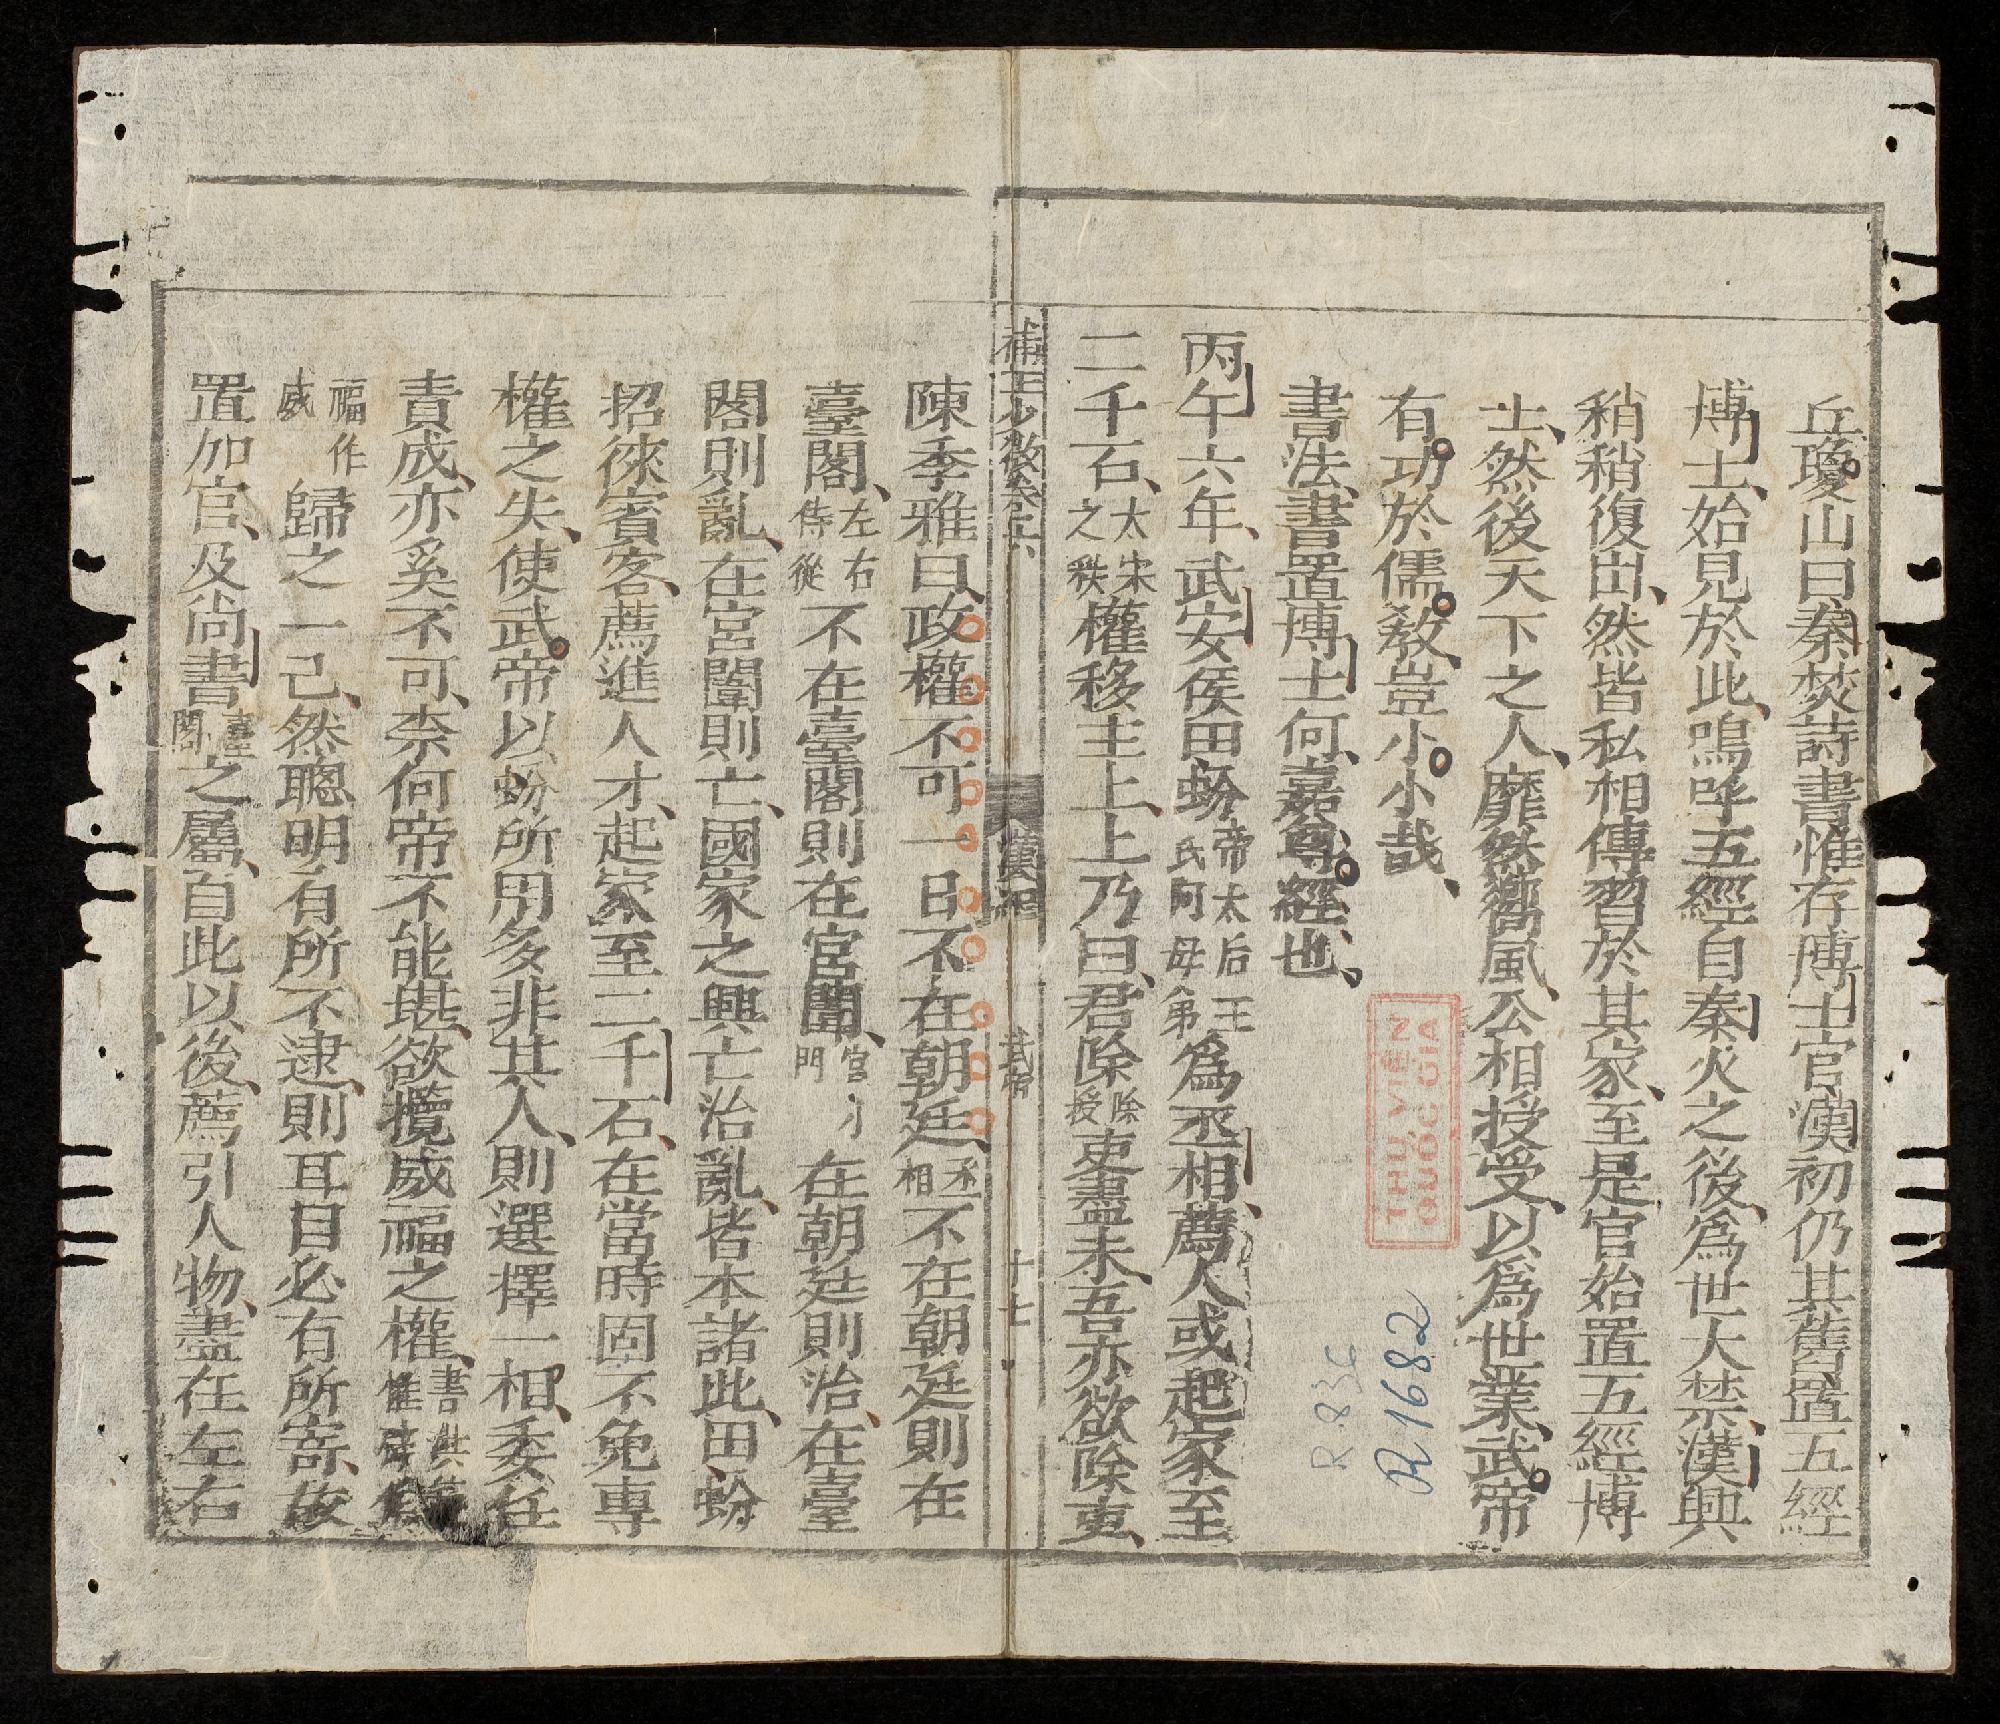 丘瓊山曰秦焚詩書惟存博士官漢初仍其舊置五經
博士始見於此嗚呼五經自秦火之後爲世大禁漢興
稍稍復出然皆私相傳習於其家至是官始置五經博
士然後天下之人靡然嚮風公相授受以爲世業武帝
有功於儒教豈小小哉
書法書置博士何嘉尊經也
丙午六年武安侯田蚡帝太后王氏同母弟爲丞相薦人或起家至
二千石太宋之秩權移主上上乃曰君除除授吏盡未吾亦欲除吏
補正少微卷之六 漢紀 武帝 十七
陳季雅曰政權不可一日不在朝廷丞相不在朝廷則在
臺閣左右侍從不在臺閣則在宮闈宮門在朝廷則治在臺
閣則亂在宮闈則亡國家之興亡治亂皆本諸此田蚡
招徠賓客薦進人才起家至二千石在當時固不免專
權之失使武帝以蚡所用多非其人則選擇一相委任
責成亦奚不可奈何帝不能堪欲攬威福之權書洪範惟辟
福作威歸之一己然聰明有所不逮則耳目必有所寄故
置加官及尚書臺閣之屬自此以後薦引人物盡在左右
THƯ VIỆN
QUỐC GIA
R 1682